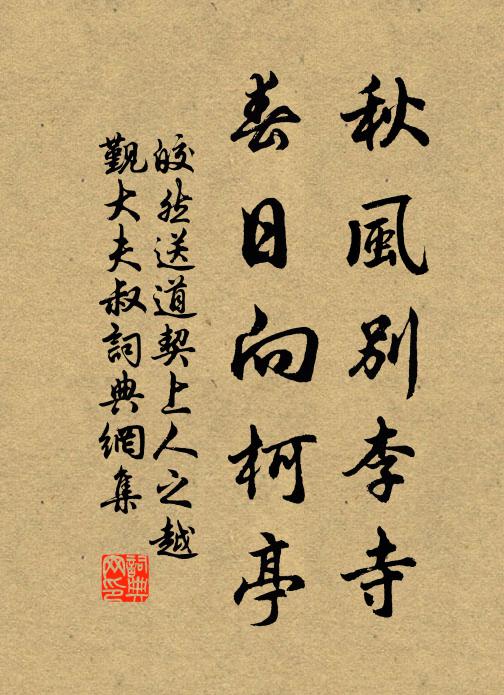 秋風別李寺
春日向柯亭
皎然送道契上人之越
覲大夫叔詞典網集
詞典
网印